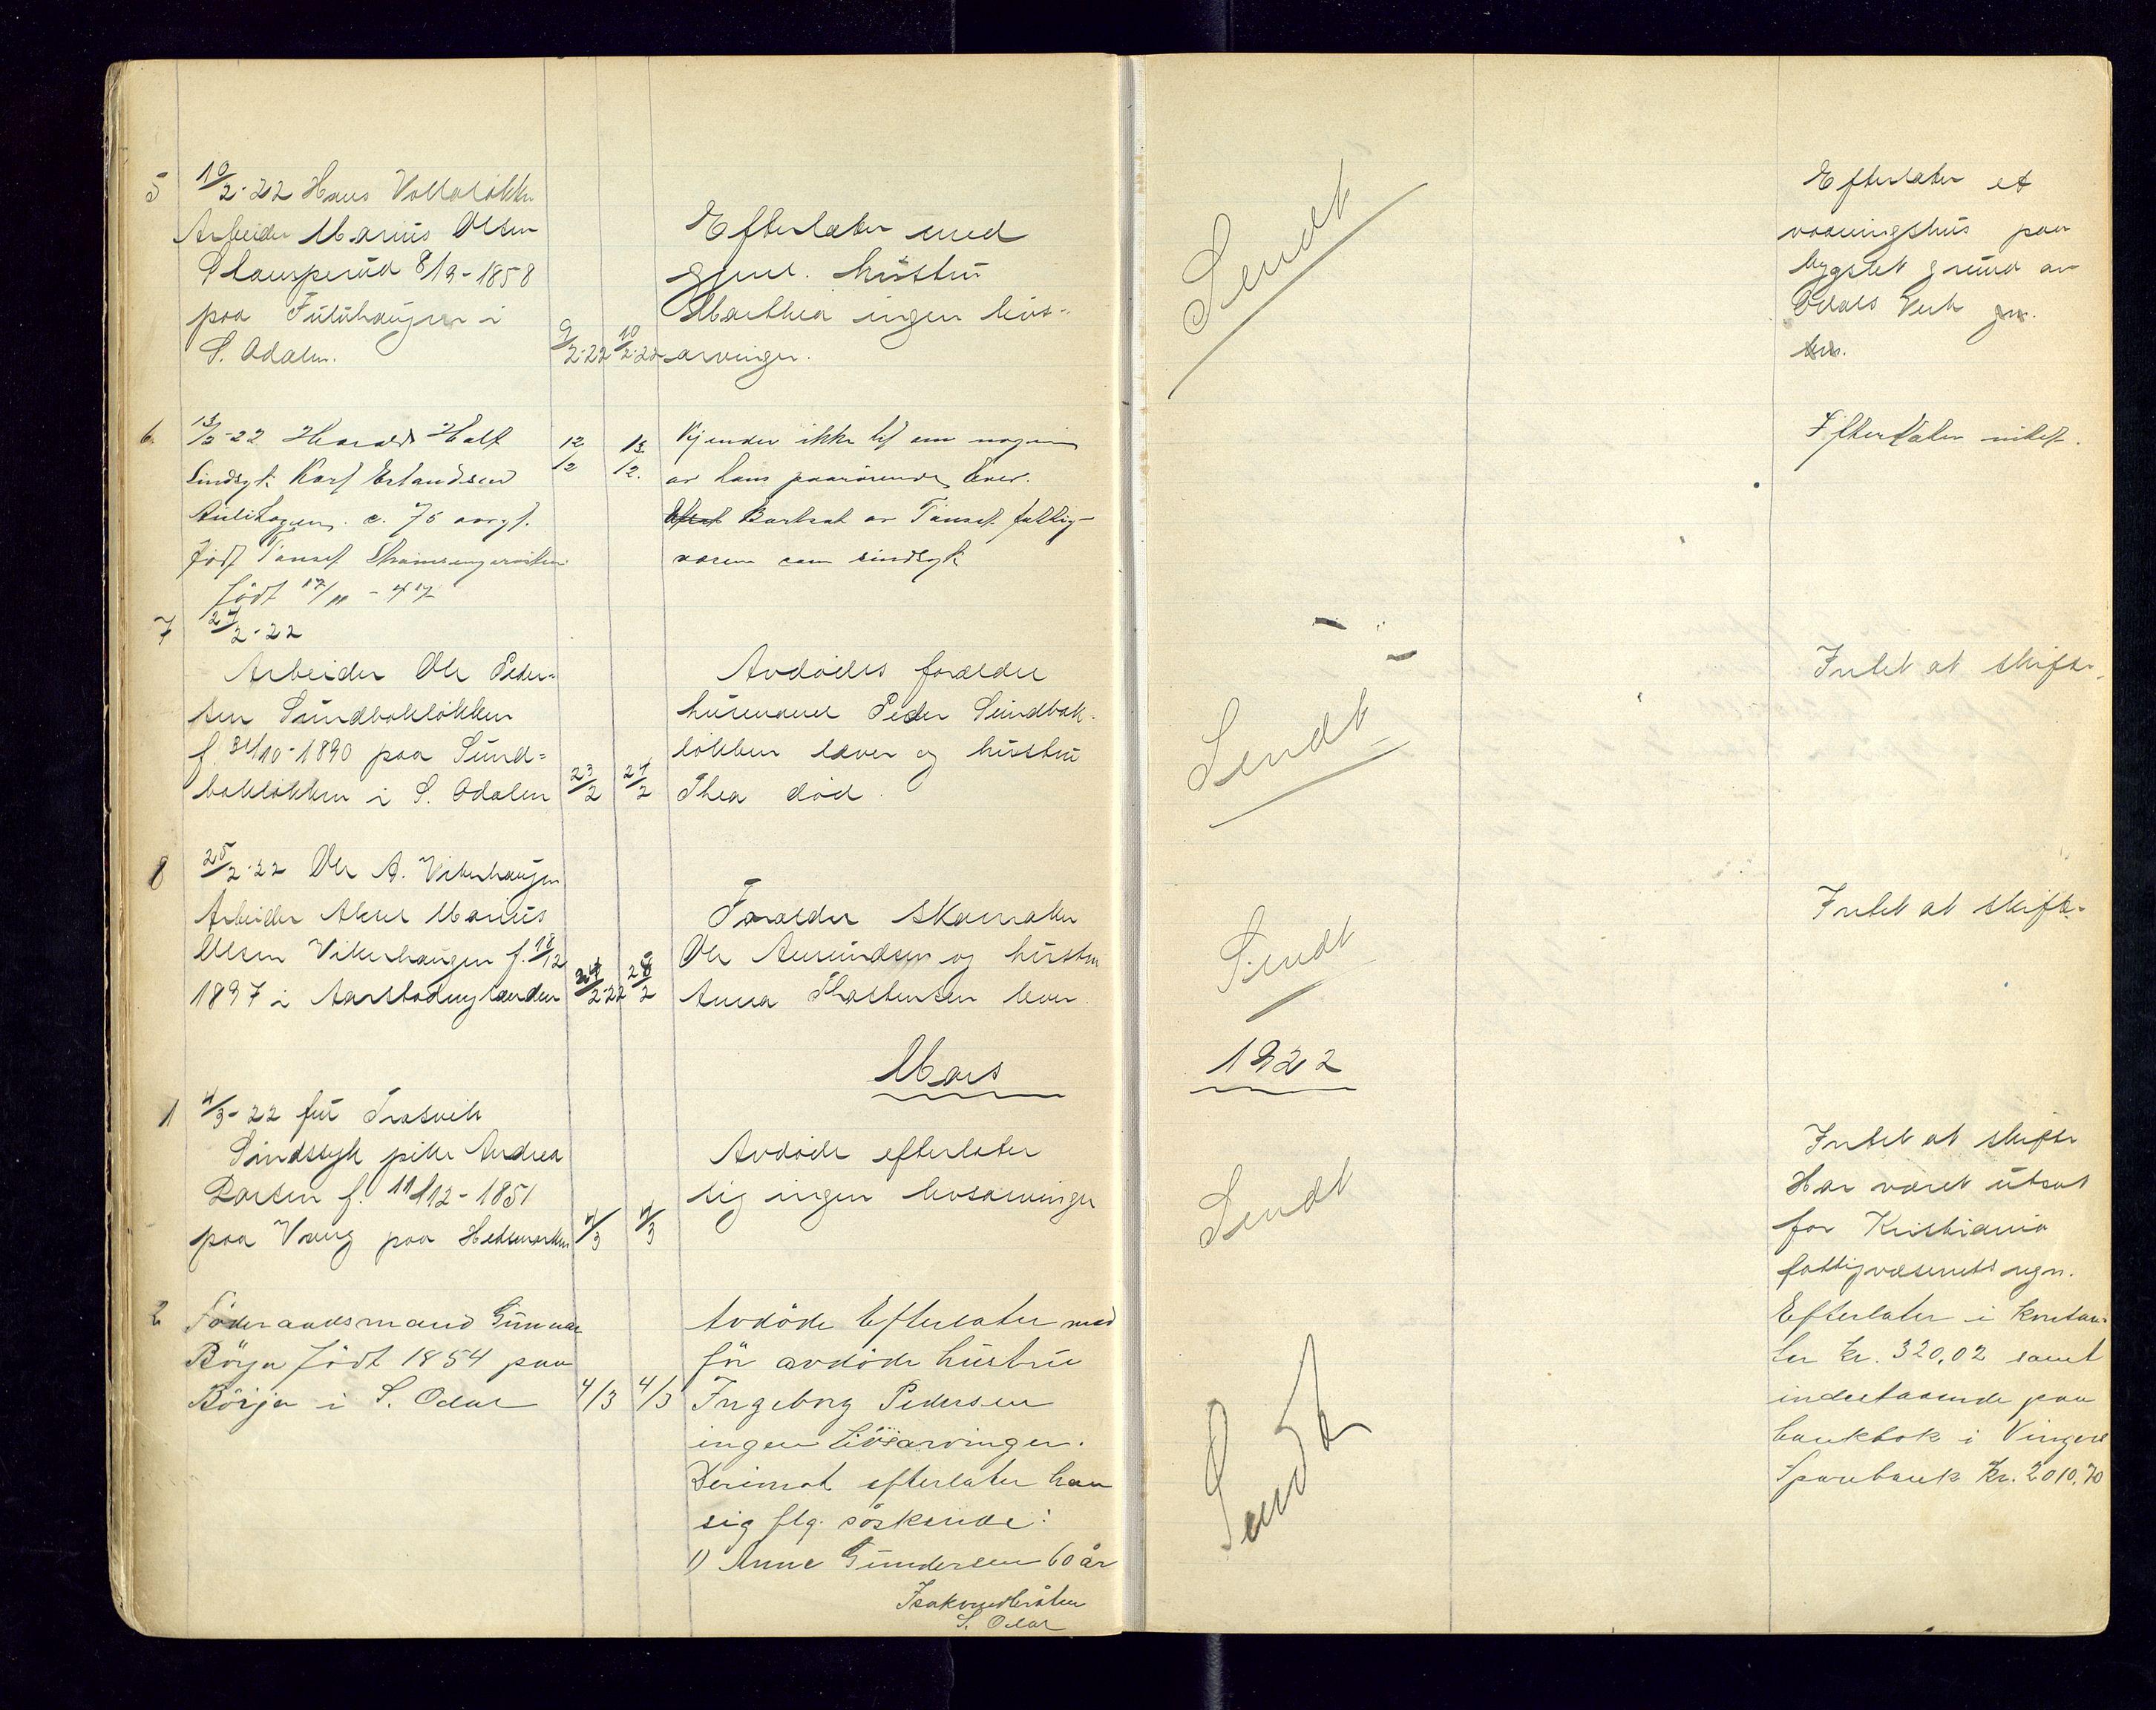 5 10/2-22 Hans Vollaløkken
Arbeider Marius Olsen
Slaasperud 8/9-1858
paa Fuluhaugen i
S. Odalen.
9/2-22 10/2-22
Efterlater med
gjenl. hustru
Marthea ingen livs-
arvinger.
Sendt
Efterlater et
vaaningshus paa
bygslet grund av
Odals Verk gn.
bn.
6. 13/2-22 Harald Holt
Sindsyk Karl Erlandsen
c. 75 aar gl.
født Tønset
født 17/11 - 47
12/2 13/2.
Kjender ikke til om nogen
av hans paarørende lever.
Bortsat av Tønset fattig-
væsen som sindsyk
Efterlater intet.
7 24/2-22
Arbeider Ole Peder-
sen Sundbakløkken
f. 31/10-1890 paa Sund-
bakløkken i S. Odalen
23/2 24/2
Avdødes forældre
husmand Peder Sundbak-
løkken lever og hustru
Thea død.
Sendt
Intet at skifte.
8 25/2-22 Ole A. Vikerhaugen
Arbeider Aksel Marius
Olsen Vikerhaugen f. 18/12
1897 i
24/2-22 28/2
Forældre skomaker
Ole Amundsen og hustru
Anna Thorstensen lever.
Sendt
Intet at skifte.
Mars 1922
1 4/3-22 fru Træsvik
Sindssyk pike Andrea
Larsen f. 11/12-1851
paa Vang paa Hedemarken
4/3 4/3
Avdøde efterlater
sig ingen livsarvinger
Sendt
Intet at skifte
Har været utsat
for Kristiania
fattigvæsenets regn.
2 Föderaadsmand Gunnar
Börja född 1854 paa
Börja i S. Odal
4/3 4/3
Avdöde Efterlater med
för avdöde hustru
Ingeborg Pedersen
ingen livsarvinger.
Derimot efterlater han
sig flg. söskende:
1) Anne Gundersen 60 år
S. Odal
Sendt
Efterlater i kontan-
ter kr. 320,02 samt
indestaaende paa
bankbok i Vinger
Sparebank kr. 2010,70